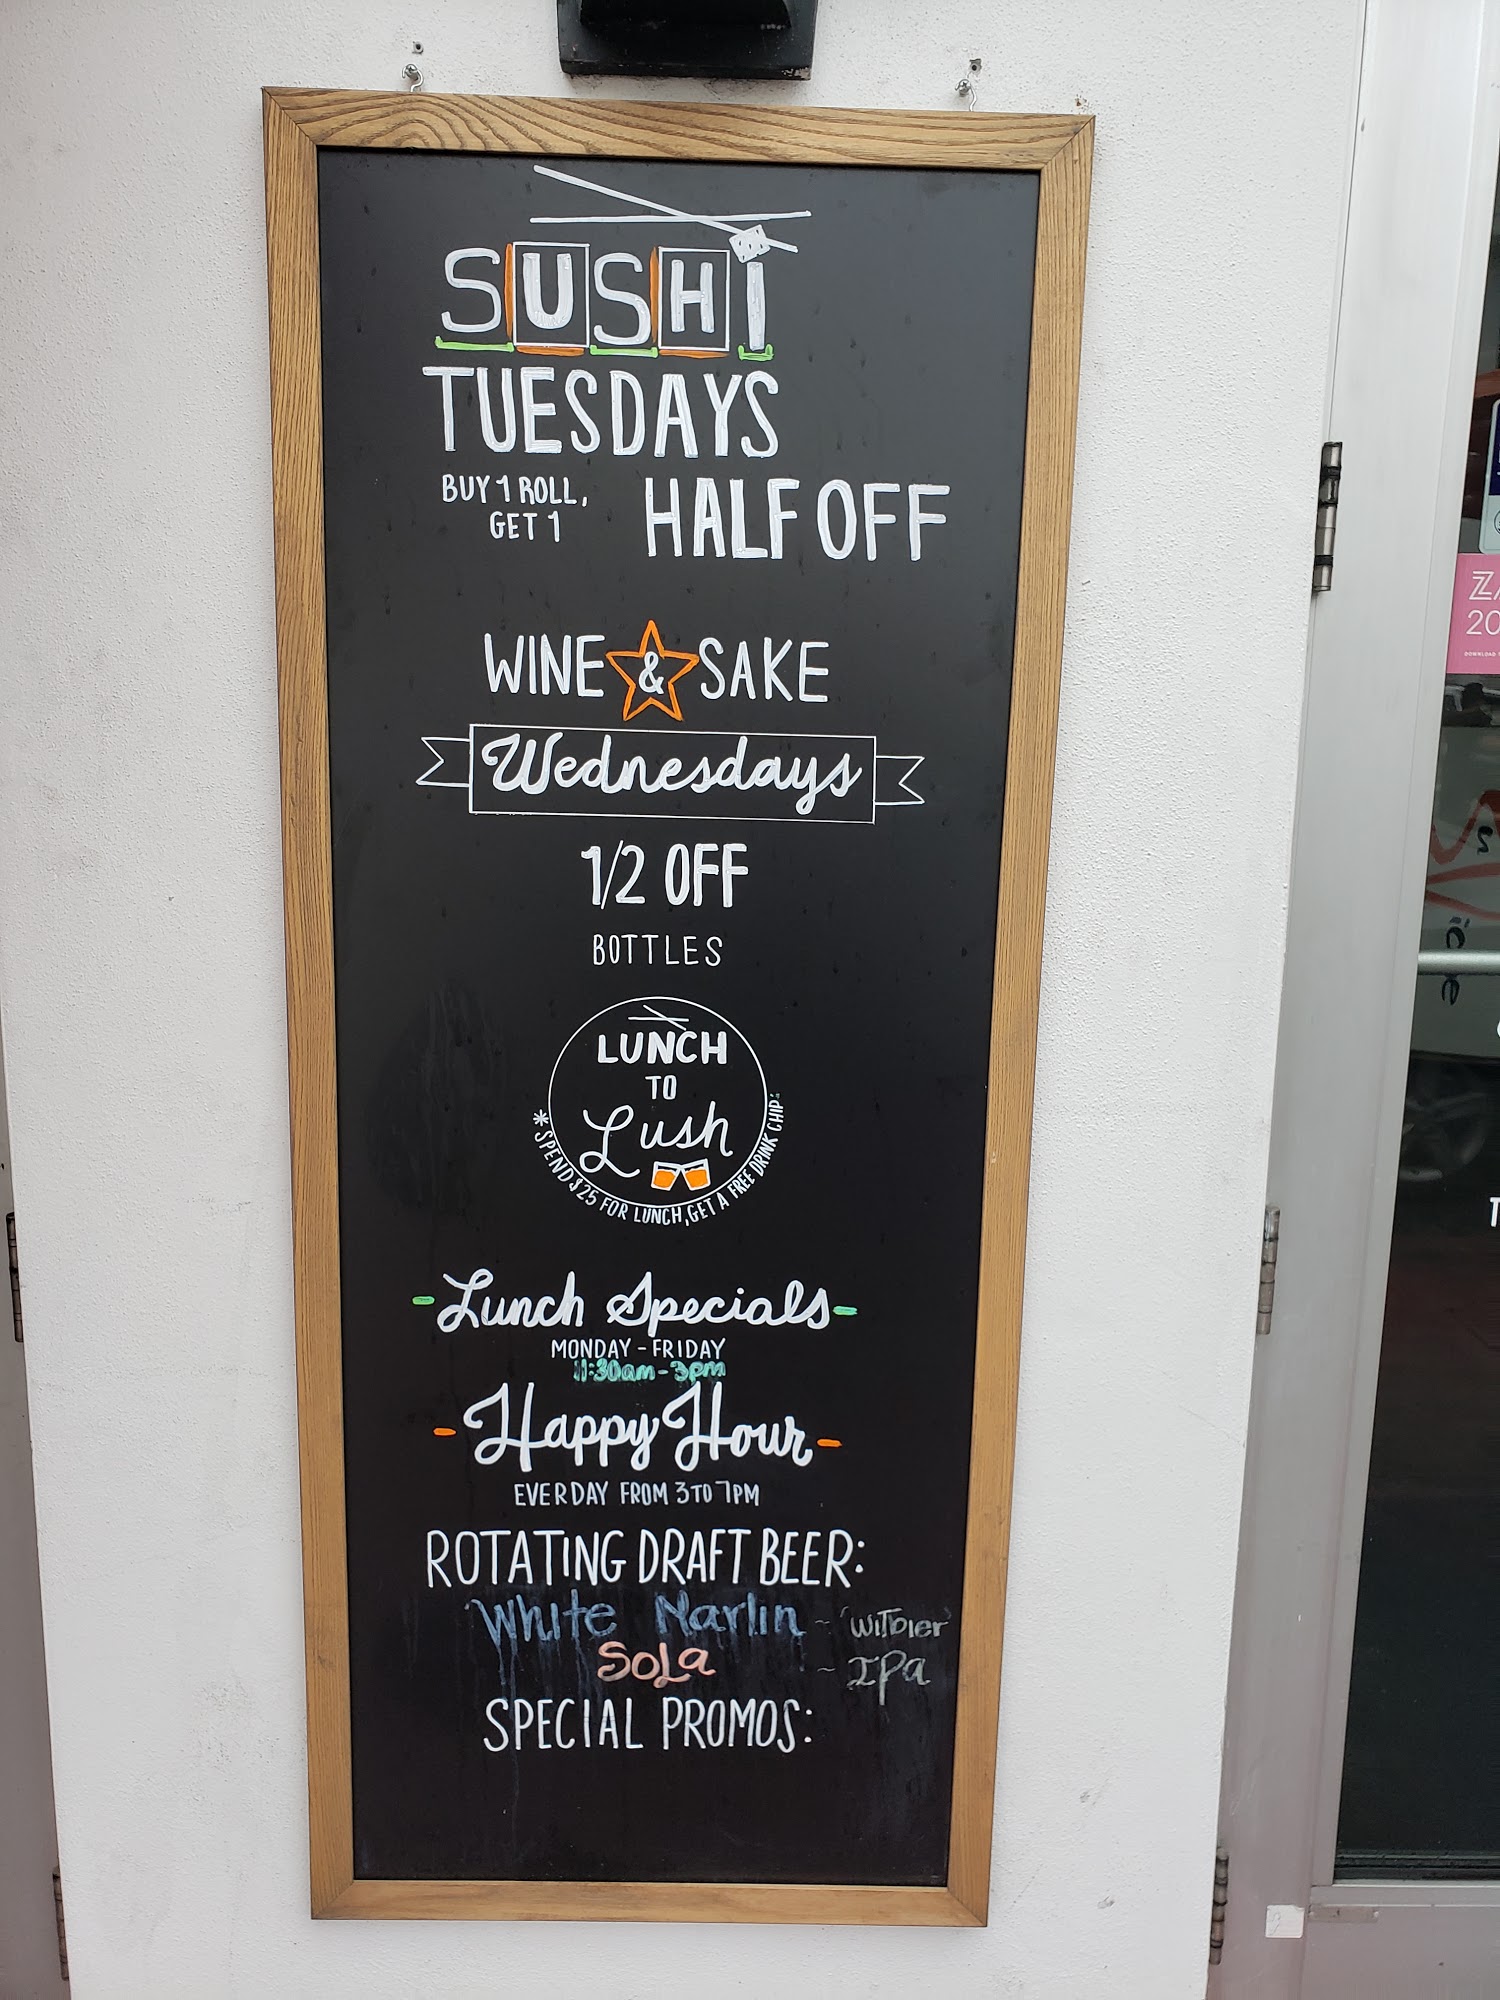 SUSHI
TUESDAYS
BUY 1 ROLL,
GET 1
HALF OFF
WINE & SAKE
Wednesdays
1/2 OFF
BOTTLES
LUNCH
TO
Lush
* SPEND $25 FOR LUNCH, GET A FREE DRINK CHIP.
-Lunch Specials-
MONDAY - FRIDAY
11:30am - 3pm
- Happy Hour -
EVERDAY FROM 3 TO 7PM
ROTATING DRAFT BEER:
White Marlin ~ 'witbier'
SoLa ~ IPa
SPECIAL PROMOS:
20
DOWNLOAD
ice